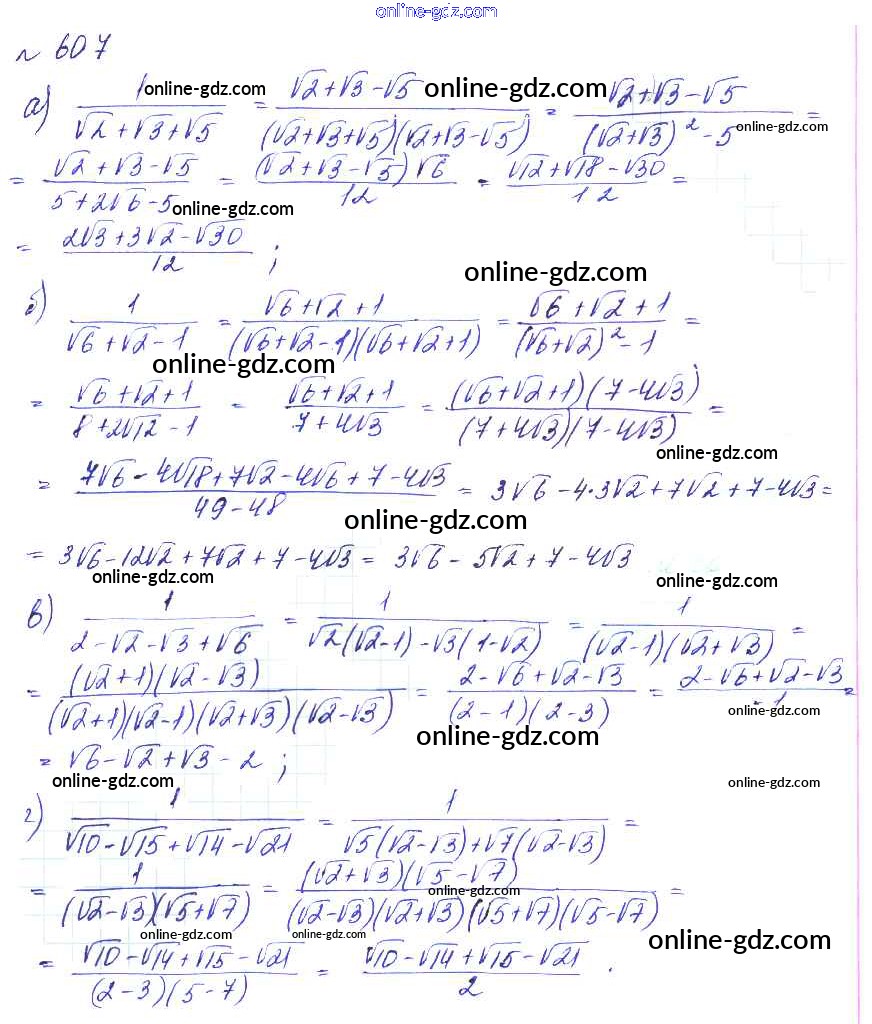 online-gdz.com
№ 607
а) 1/(√2+√3+√5) = (√2+√3-√5)/((√2+√3+√5)(√2+√3-√5)) = (√2+√3-√5)/((√2+√3)²-5) =
online-gdz.com online-gdz.com online-gdz.com
= (√2+√3-√5)/(5+2√6-5) = ((√2+√3-√5)√6)/12 = (√12+√18-√30)/12 =
online-gdz.com
= (2√3+3√2-√30)/12 ;
online-gdz.com
б) 1/(√6+√2-1) = (√6+√2+1)/((√6+√2-1)(√6+√2+1)) = (√6+√2+1)/((√6+√2)²-1) =
online-gdz.com
= (√6+√2+1)/(8+2√12-1) = (√6+√2+1)/(7+4√3) = ((√6+√2+1)(7-4√3))/((7+4√3)(7-4√3)) =
online-gdz.com
= (7√6-4√18+7√2-4√6+7-4√3)/(49-48) = 3√6-4·3√2+7√2+7-4√3 =
online-gdz.com
= 3√6-12√2+7√2+7-4√3 = 3√6-5√2+7-4√3
online-gdz.com online-gdz.com
в) 1/(2-√2-√3+√6) = 1/(√2(√2-1)-√3(1-√2)) = 1/((√2-1)(√2+√3)) =
= ((√2+1)(√2-√3))/((√2+1)(√2-1)(√2+√3)(√2-√3)) = (2-√6+√2-√3)/((2-1)(2-3)) = (2-√6+√2-√3)/-1 =
online-gdz.com online-gdz.com
= √6-√2+√3-2 ;
online-gdz.com online-gdz.com
г) 1/(√10-√15+√14-√21) = 1/(√5(√2-√3)+√7(√2-√3)) =
= 1/((√2-√3)(√5+√7)) = ((√2+√3)(√5-√7))/((√2-√3)(√2+√3)(√5+√7)(√5-√7)) =
online-gdz.com
online-gdz.com online-gdz.com online-gdz.com
= (√10-√14+√15-√21)/((2-3)(5-7)) = (√10-√14+√15-√21)/2 .